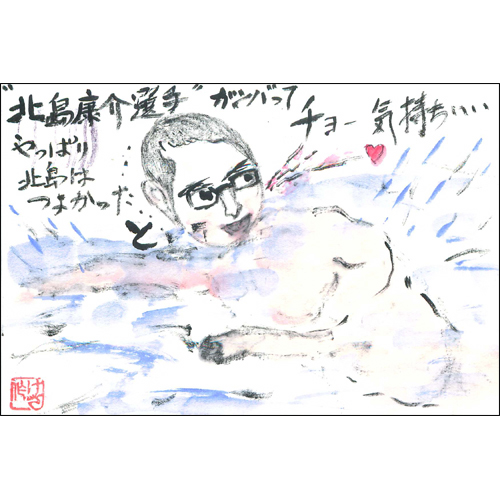 "北島康介選手"ガンバって
チョー気持ちいい
やっぱり
北島は
つよかった…
と…